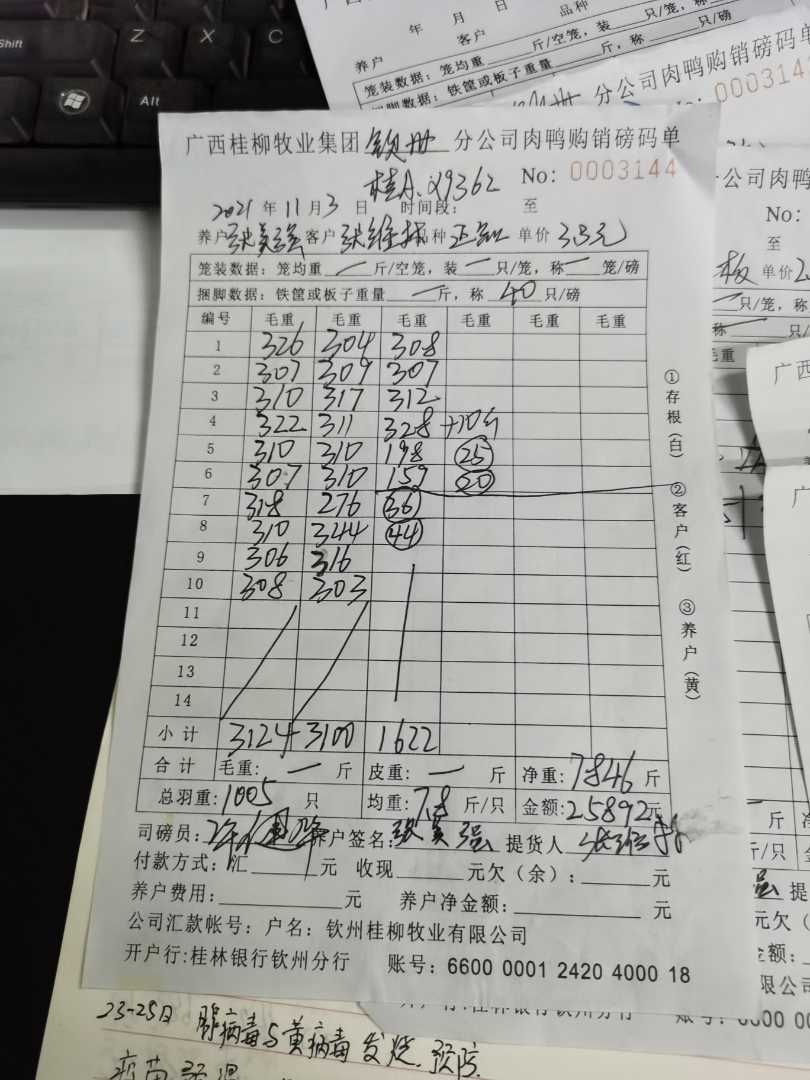 Shift
Z
X
C
Alt
年 月 日 品种
养户 客户 斤/空笼，装 只/笼，称
笼装数据：笼均重 斤，称 只/磅
捆脚数据：铁筐或板子重量
分公司肉鸭购销磅码单
广西桂柳牧业集团 钦州 分公司肉鸭购销磅码单
桂A·Q9362 No: 0003144
2021 年 11 月 3 日 时间段： 至
养户 张英强 客户 张维 品种 正 单价 3.3元
笼装数据：笼均重 — 斤/空笼，装 — 只/笼，称 — 笼/磅
捆脚数据：铁筐或板子重量 — 斤，称 40 只/磅
编号 毛重 毛重 毛重 毛重 毛重 毛重
1 326 304 308
2 307 309 307
3 310 317 312
4 322 311 328 +10斤
5 310 310 198 25
6 307 310 159 20
7 318 276 36
8 310 344 44
9 306 316
10 308 303
11
12
13
14
小计 3124 3100 1622
合计 毛重：— 斤 皮重：— 斤 净重：7846 斤
总羽重：1005 只 均重：7.8 斤/只 金额：25892元
司磅员： 养户签名：张英强 提货人 张维
付款方式：汇 元 收现 元欠（余）： 元
养户费用： 元 养户净金额： 元
公司汇款帐号：户名：钦州桂柳牧业有限公司
开户行：桂林银行钦州分行 账号：6600 0001 2420 4000 18
①存根（白） ②客户（红） ③养户（黄）
公司肉鸭
No:
至
板 单价
只/笼，称
只/磅
毛重
广西
斤
斤/只
强 提
元欠（
金额：
限公司
开户行：桂林银行钦州分行 账号：6600 00
23-25日 鸭病毒与黄病毒发烧.预防
疫苗